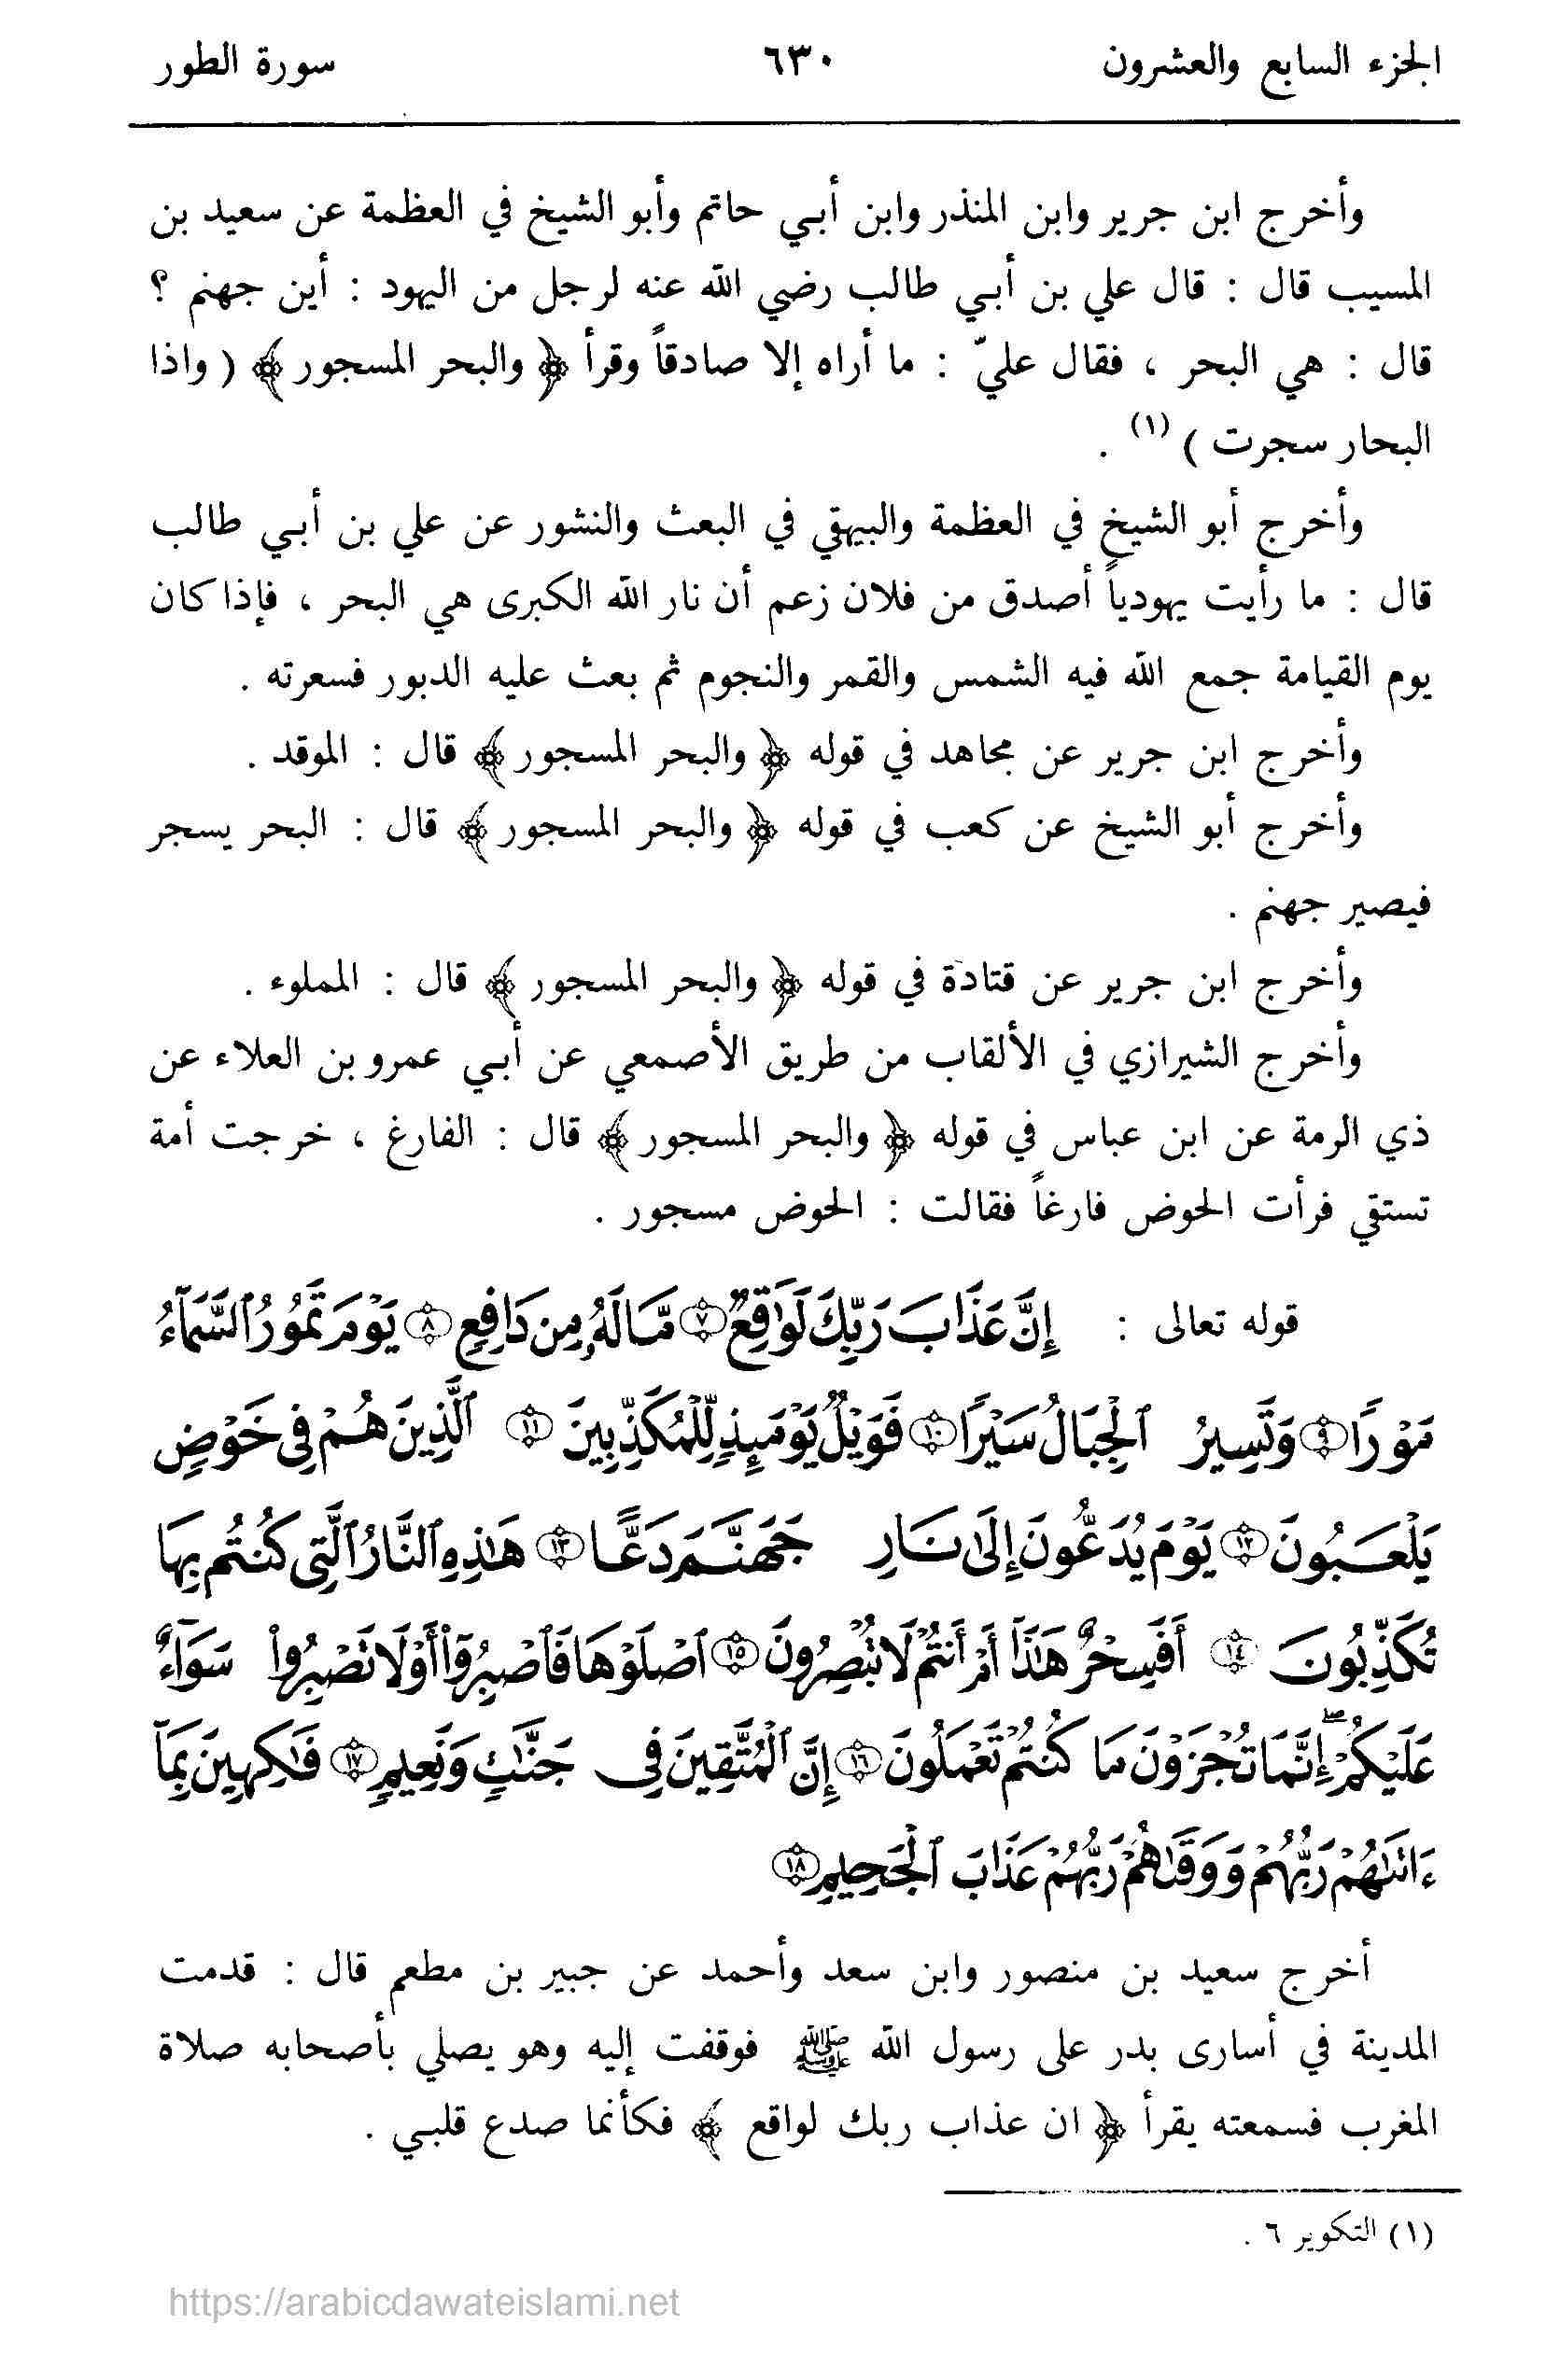 الجزء السابع والعشرون ٦٣٠ سورة الطور
وأخرج ابن جرير وابن المنذر وابن أبـي حاتم وأبو الشيخ في العظمة عن سعيد بن
المسيب قال : قال علي بن أبـي طالب رضي الله عنه لرجل من اليهود : أين جهنم ؟
قال : هي البحر ، فقال عليّ : ما أراه إلا صادقاً وقرأ ﴿ والبحر المسجور ﴾ ( واذا
البحار سجرت ) (١) .
وأخرج أبو الشيخ في العظمة والبيهقي في البعث والنشور عن علي بن أبـي طالب
قال : ما رأيت يهودياً أصدق من فلان زعم أن نار الله الكبرى هي البحر ، فإذا كان
يوم القيامة جمع الله فيه الشمس والقمر والنجوم ثم بعث عليه الدبور فسعرته .
وأخرج ابن جرير عن مجاهد في قوله ﴿ والبحر المسجور ﴾ قال : الموقد .
وأخرج أبو الشيخ عن كعب في قوله ﴿ والبحر المسجور ﴾ قال : البحر يسجر
فيصير جهنم .
وأخرج ابن جرير عن قتادة في قوله ﴿ والبحر المسجور ﴾ قال : المملوء .
وأخرج الشيرازي في الألقاب من طريق الأصمعي عن أبـي عمرو بن العلاء عن
ذي الرمة عن ابن عباس في قوله ﴿ والبحر المسجور ﴾ قال : الفارغ ، خرجت أمة
تستقي فرأت الحوض فارغاً فقالت : الحوض مسجور .
قوله تعالى : إِنَّ عَذَابَ رَبِّكَ لَوَٰقِعٌ ٧ مَّا لَهُۥ مِن دَافِعٍ ٨ يَوْمَ تَمُورُ ٱلسَّمَآءُ
مَوْرًا ٩ وَتَسِيرُ ٱلْجِبَالُ سَيْرًا ١٠ فَوَيْلٌ يَوْمَئِذٍ لِّلْمُكَذِّبِينَ ١١ ٱلَّذِينَ هُمْ فِى خَوْضٍ
يَلْعَبُونَ ١٢ يَوْمَ يُدَعُّونَ إِلَىٰ نَارِ جَهَنَّمَ دَعًّا ١٣ هَٰذِهِ ٱلنَّارُ ٱلَّتِى كُنتُم بِهَا
تُكَذِّبُونَ ١٤ أَفَسِحْرٌ هَٰذَآ أَمْ أَنتُمْ لَا تُبْصِرُونَ ١٥ ٱصْلَوْهَا فَٱصْبِرُوٓا۟ أَوْ لَا تَصْبِرُوا۟ سَوَآءٌ
عَلَيْكُمْ ۖ إِنَّمَا تُجْزَوْنَ مَا كُنتُمْ تَعْمَلُونَ ١٦ إِنَّ ٱلْمُتَّقِينَ فِى جَنَّٰتٍ وَنَعِيمٍ ١٧ فَٰكِهِينَ بِمَآ
ءَاتَىٰهُمْ رَبُّهُمْ وَوَقَىٰهُمْ رَبُّهُمْ عَذَابَ ٱلْجَحِيمِ ١٨
أخرج سعيد بن منصور وابن سعد وأحمد عن جبير بن مطعم قال : قدمت
المدينة في أسارى بدر على رسول الله ﷺ فوقفت إليه وهو يصلي بأصحابه صلاة
المغرب فسمعته يقرأ ﴿ ان عذاب ربك لواقع ﴾ فكأنما صدع قلبـي .
(١) التكوير ٦ .
https://arabicdawateislami.net